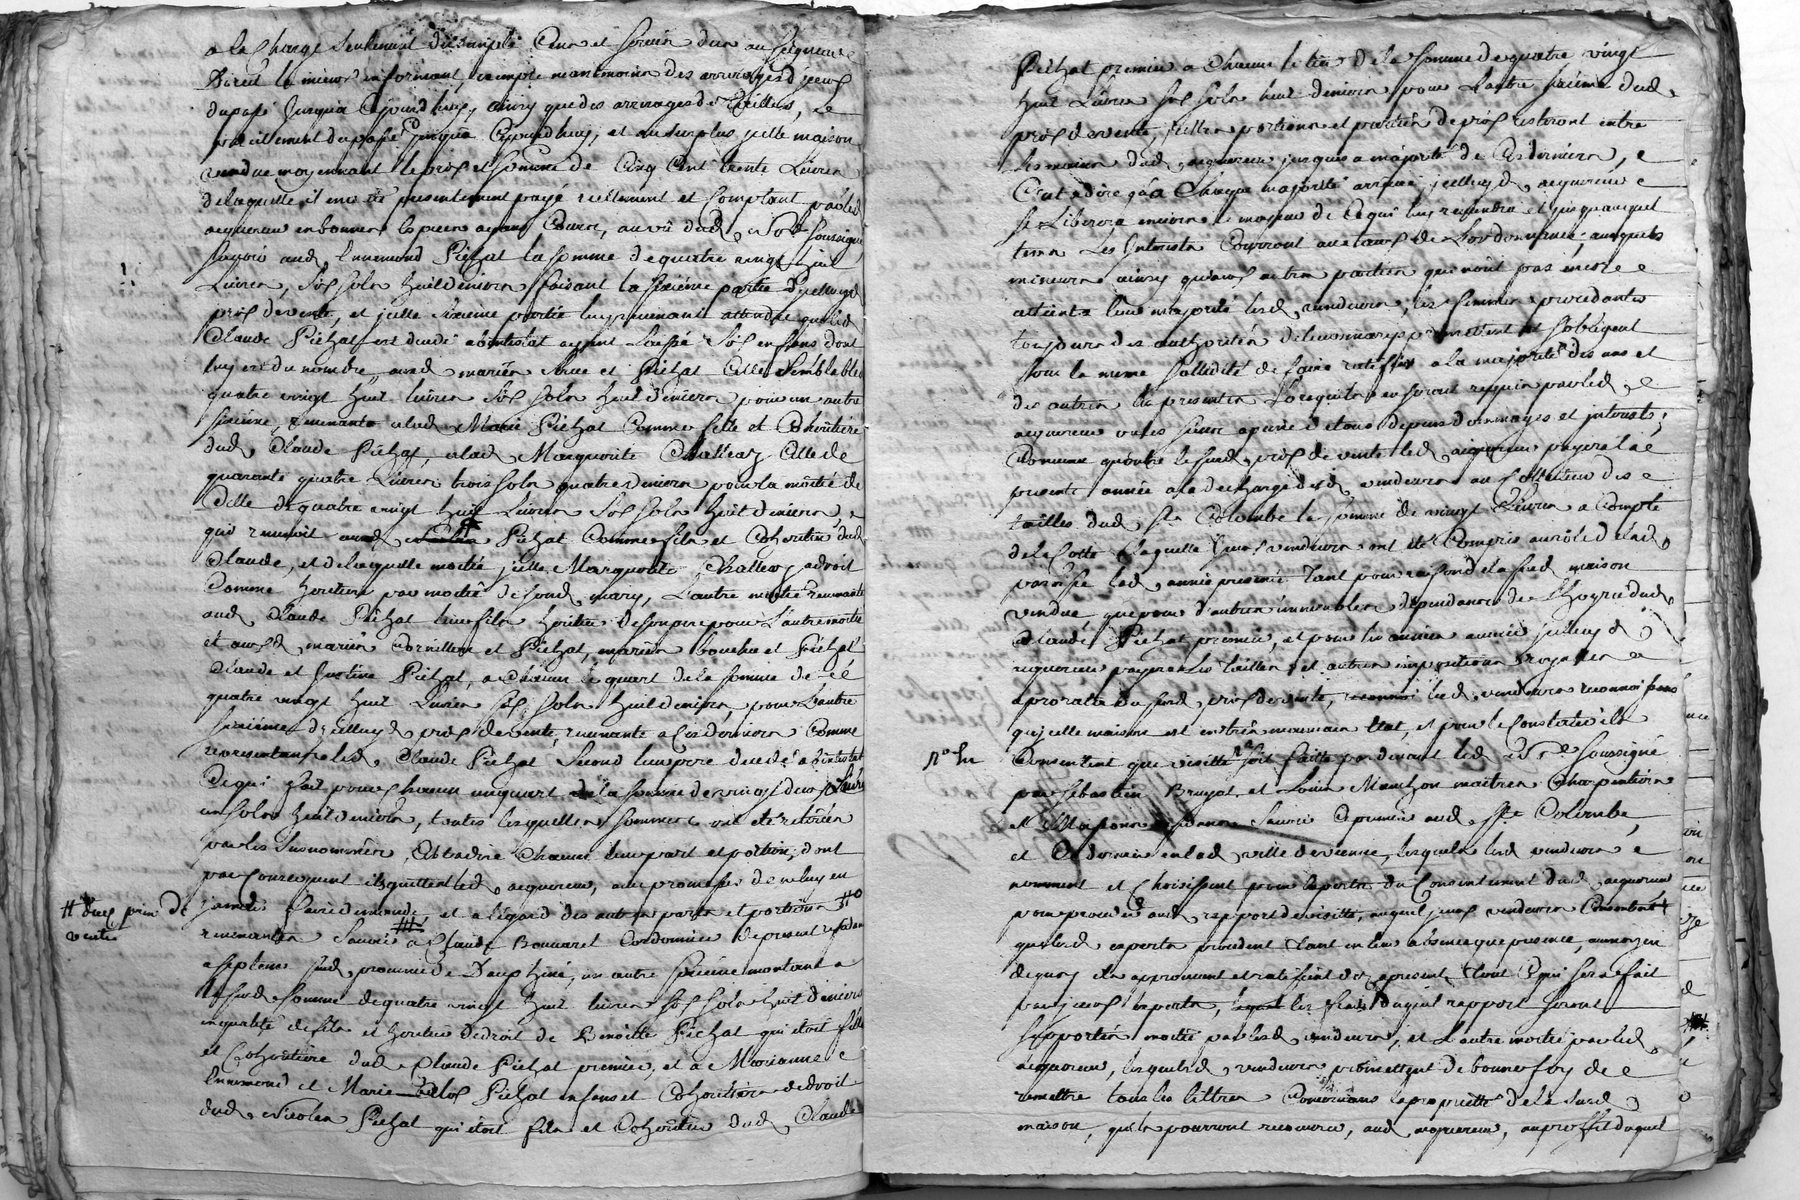 a la charge seulement du simple Cens et servis dus au seigneur
Direct la mieux informant exempte neantmoins des arrerages d'iceux
du passé jusqua aujourd'huy, ainsy que des arrerages de tailles, Le
tout du passé jusqua aujourdhuy, et au surplus jcelle maison
vendue moyennant le prix et somme de Cinq Cent trente Livres
de laquelle il en a été presentement payé reellement et Comptant par led
acquereur en bonnes Especes ayans Cours, au vû dud Nore soussigné
savoir aud Ennemond Pichat la somme de quatre vingt huit
Livres, six sols huit deniers faisant la sixième partie d'jcelluy d
prix de vente, et jcelle sixieme partie luy revenant attendu que led
Claude Pichat est decedé abintestat ayant Laissé six enfans dont
luy est du nombre, aux d mariés et Pichat Celle semblable
quatre vingt huit livres six sols huit deniers pour un autre
sixième, revenante alad Marie Pichat Comme fille et Cohéritière
dud Claude Pichat, alad Marguerite Challeaz Celle de
quarante quatre Livres trois sols quatre deniers pour la moitié de
Celle de quatre vingt huit Livres six sols huit deniers
qui revenoit aud Pichat Comme fils et Cohéritier dud
Claude, et de laquelle moitié jcelle Marguerite Challeaz a droit
Comme heritiere par moitié de sond mary, L'autre moitié revenante
aud Claude Pichat leur fils heritier de son pere pour L'autre moitié
et auxd mariés Cornillon et Pichat, mariés bouchu et Pichat
Claude et Justine Pichat, a chacun le quart de la somme de
quatre vingt huit Livres six sols huit deniers, pour L'autre
sixième d'jcelluy d prix de vente, revenante a Ces derniers Comme
representans led Claude Pichat second leur pere decedé abintestat
Ce qui fait pour chacun un quart de la somme de vingt deux Livres
un sols huit deniers, toutes lesquelles sommes ont été retirées
par les susnommés, Cest a dire Chacun leur part et portion, dont
par Consequent ils quittent led acquereur, avec promesses de ne luy en
jamais faire demande, et a l'égard des autres parts et portions
# dud prix de
vente
revenantes savoir a Claude Bouvaret Cordonnier de present residant
a septeme sud province de Dauphiné, un autre sixième montant a
lad somme de quatre vingt huit livres six sols huit deniers
en qualité de fils et heritier de droit de Benoite Pichat qui étoit fille
et Cohéritière dud Claude Pichat premier, et a Marianne
Ennemond et Marie Pichat enfans et Cohéritiers de droit
dud Nicolas Pichat qui étoit fils et Cohéritier dud Claude
Pichat premier a Chacun le tiers de la somme de quatre vingt
huit Livres six sols huit deniers pour L'autre sixième dud
prix de vente, jcelles portions et parties de prix resteront entre
les mains dud acquereur jusques a majorité de Ces derniers,
C'est a dire qu'a Chaque majorité arrivée jcelluy d acquereur
se Liberera envers le majeur de Ce qui luy reviendra et jusqu'auquel
tems Les Interests Courront au taux de L'ordonnance, auxquels
mineurs ainsy qu'aux autres parties qui n'ont pas encore
atteint leur majorité lesd vendeurs, les femmes procedantes
toujours des authorités de leurs marys promettent et s'obligent
sous la meme solidité de faire ratiffier a la majorité des uns et
des autres les presentes Lorsquils en seront requis par led
acquereur a peine de tous depens dommages et interests;
Convenu qu'outre le susd prix de vente led acquereur payera la
presente année a la decharge desd vendeurs au Collecteur des
tailles dud Ste Colombe la somme de vingt Livres a Compte
de la Cotte a laquelle jceux vendeurs ont été Compris au rôle de lad
paroisse lad année presente tant pour raison de la susd maison
vendue que pour d'autres immeubles dependans de L'hoyrie dud
Claude Pichat premier, et pour les années jcelluy d
acquereur payera les tailles, et autres impositions royalles
a prorata du susd prix de vente, lesd vendeurs reconnoissans
qu'jcelle maison est en très mauvais état, et pour le Constater ils
Consentent que visite en soit faitte pardevant led Nore soussigné
par sebastien Brujat et Louis Manchon maitres Charpentiers
et Massons savoir le premier aud Ste Colombe,
et Ce dernier en lad ville de vienne, lesquels lesd vendeurs
nomment et Choisissent pour Experts du Consentement dud acquereur
pour proceder aud rapport de visitte, auquel jceux vendeurs Consentent
que lesd experts procedent tant en leur absence que presence, au moyen
de quoy ils approuvent et ratifient des apresent tout Ce qui sera fait
par jceux experts, les frais duquel rapport seront
supportés moitié par lesd vendeurs, et L'autre moitié par led
acquereur, lesquels d vendeurs promettent de bonne foy de
remettre tous les titres Concernans la proprieté de la susd
maison, qu'ils pourront recouvrer, aud acquereur, au proffit duquel